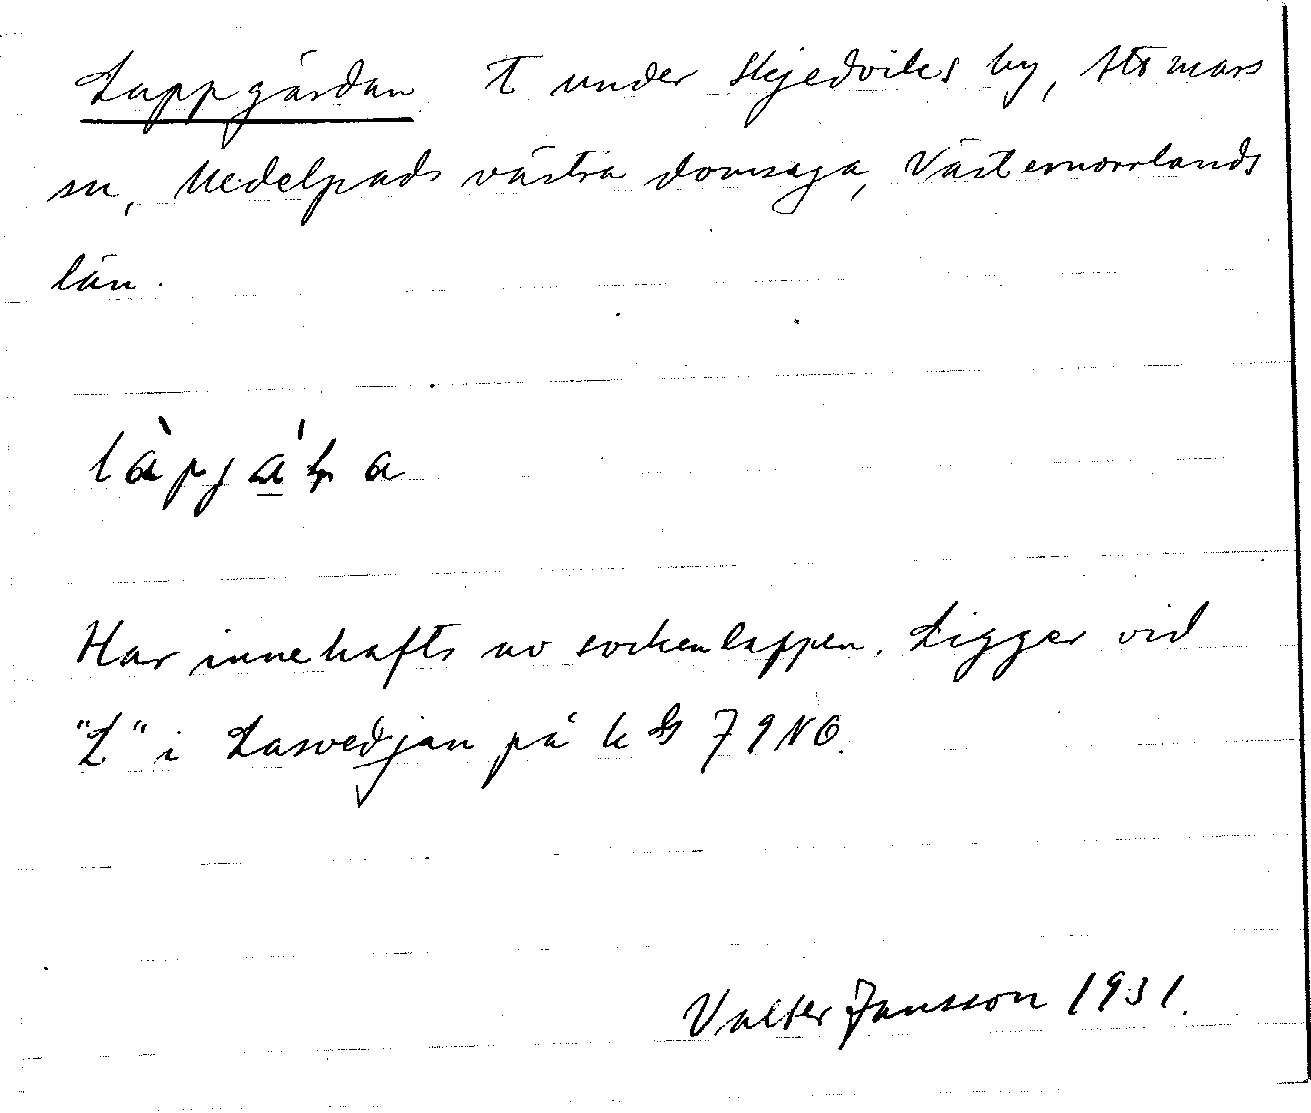 Lappgårdan t under Skjedviks by, Attmars
sn, Medelpads västra domsaga, Västernorrlands
län.
Har innehafts av sockenlappen. Ligger vid
"L" i Lasvedjan på
79 NO.
Valter Jansson 1931.